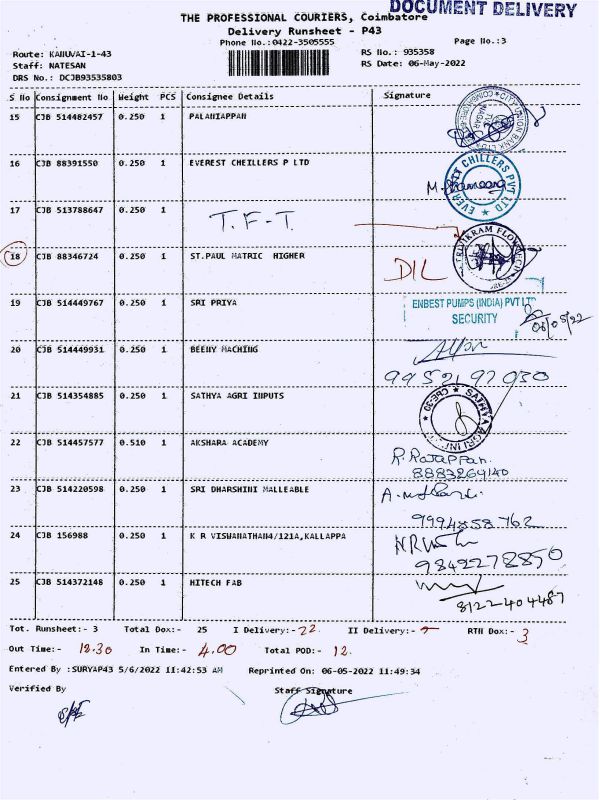 DOCUMENT DELIVERY
THE PROFESSIONAL COURIERS, Coimbatore
Delivery Runsheet - P43
Phone No.:0422-3505555
Page No.:3
Route: KANUVAI-1-43
RS No.: 935358
Staff: NATESAN
RS Date: 06-May-2022
DRS No.: DCJB93535803
S No Consignment No Weight PCS Consignee Details Signature
15 CJB 514482457 0.250 1 PALANIAPPAN
CITY UNION BANK LTD
16 CJB 88391550 0.250 1 EVEREST CHEILLERS P LTD
EVEREST CHILLERS PVT LTD
17 CJB 513788647 0.250 1 T.F-T.
18 CJB 88346724 0.250 1 ST.PAUL MATRIC HIGHER DIL
19 CJB 514449767 0.250 1 SRI PRIYA
ENBEST PUMPS (INDIA) PVT LTD
SECURITY
06/05/22
20 CJB 514449931 0.250 1 BEENY MACHING
9952192030
21 CJB 514354885 0.250 1 SATHYA AGRI INPUTS
SATHYA AGRI INPUTS CBE-30
22 CJB 514457577 0.510 1 AKSHARA ACADEMY
R. Rajappan.
8883264140
23 CJB 514220598 0.250 1 SRI DHARSHINI MALLEABLE
9994858762
24 CJB 156988 0.250 1 K R VISWANATHAN4/121A,KALLAPPA
9842278850
25 CJB 514372148 0.250 1 HITECH FAB
8122404487
Tot. Runsheet:- 3 Total Dox:- 25 I Delivery:- 22 II Delivery:- RTN Dox:- 3
Out Time:- 12.30 In Time:- 4.00 Total POD:- 12.
Entered By :SURYAP43 5/6/2022 11:42:53 AM Reprinted On: 06-05-2022 11:49:34
Verified By Staff Signature